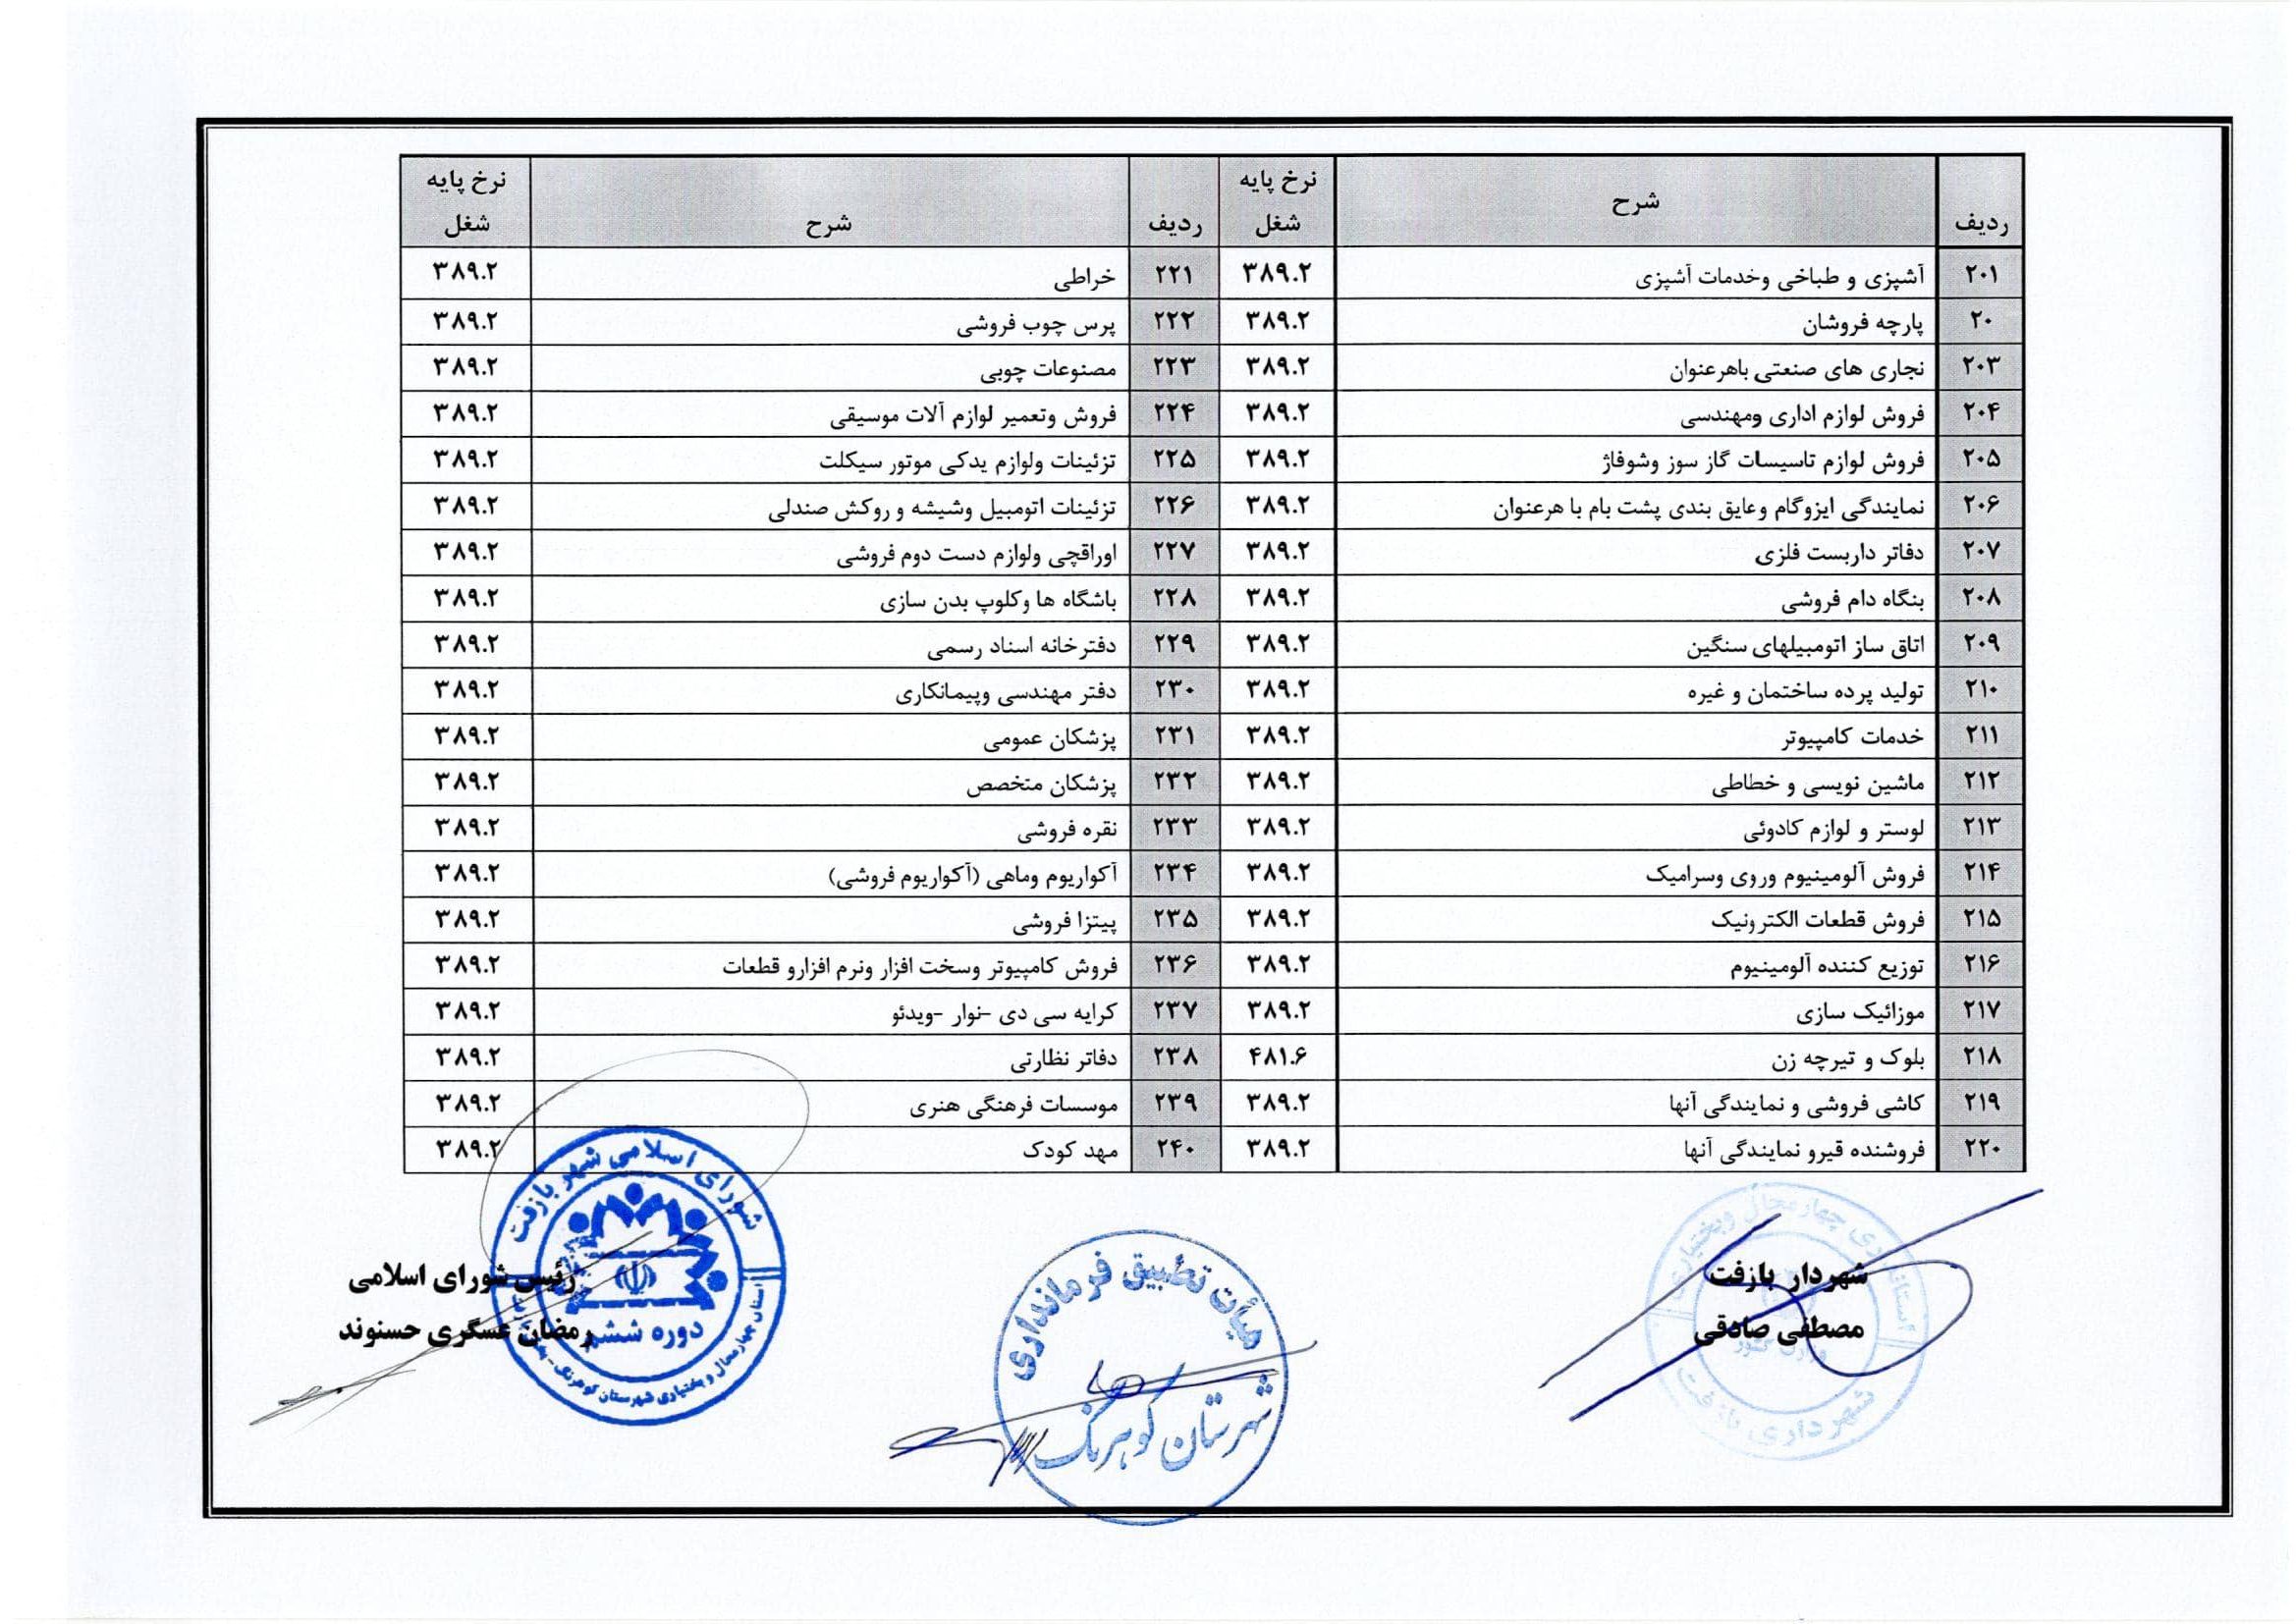 ردیف شرح نرخ پایه شغل ردیف شرح نرخ پایه شغل
۲۰۱ آشپزی و طباخی وخدمات آشپزی ۳۸۹.۲ ۲۲۱ خراطی ۳۸۹.۲
۲۰ پارچه فروشان ۳۸۹.۲ ۲۲۲ پرس چوب فروشی ۳۸۹.۲
۲۰۳ نجاری های صنعتی باهرعنوان ۳۸۹.۲ ۲۲۳ مصنوعات چوبی ۳۸۹.۲
۲۰۴ فروش لوازم اداری ومهندسی ۳۸۹.۲ ۲۲۴ فروش وتعمیر لوازم آلات موسیقی ۳۸۹.۲
۲۰۵ فروش لوازم تاسیسات گاز سوز وشوفاژ ۳۸۹.۲ ۲۲۵ تزئینات ولوازم یدکی موتور سیکلت ۳۸۹.۲
۲۰۶ نمایندگی ایزوگام وعایق بندی پشت بام با هرعنوان ۳۸۹.۲ ۲۲۶ تزئینات اتومبیل وشیشه و روکش صندلی ۳۸۹.۲
۲۰۷ دفاتر داربست فلزی ۳۸۹.۲ ۲۲۷ اوراقچی ولوازم دست دوم فروشی ۳۸۹.۲
۲۰۸ بنگاه دام فروشی ۳۸۹.۲ ۲۲۸ باشگاه ها وکلوپ بدن سازی ۳۸۹.۲
۲۰۹ اتاق ساز اتومبیلهای سنگین ۳۸۹.۲ ۲۲۹ دفترخانه اسناد رسمی ۳۸۹.۲
۲۱۰ تولید پرده ساختمان و غیره ۳۸۹.۲ ۲۳۰ دفتر مهندسی وپیمانکاری ۳۸۹.۲
۲۱۱ خدمات کامپیوتر ۳۸۹.۲ ۲۳۱ پزشکان عمومی ۳۸۹.۲
۲۱۲ ماشین نویسی و خطاطی ۳۸۹.۲ ۲۳۲ پزشکان متخصص ۳۸۹.۲
۲۱۳ لوستر و لوازم کادوئی ۳۸۹.۲ ۲۳۳ نقره فروشی ۳۸۹.۲
۲۱۴ فروش آلومینیوم وروی وسرامیک ۳۸۹.۲ ۲۳۴ آکواریوم وماهی (آکواریوم فروشی) ۳۸۹.۲
۲۱۵ فروش قطعات الکترونیک ۳۸۹.۲ ۲۳۵ پیتزا فروشی ۳۸۹.۲
۲۱۶ توزیع کننده آلومینیوم ۳۸۹.۲ ۲۳۶ فروش کامپیوتر وسخت افزار ونرم افزارو قطعات ۳۸۹.۲
۲۱۷ موزائیک سازی ۳۸۹.۲ ۲۳۷ کرایه سی دی -نوار -ویدئو ۳۸۹.۲
۲۱۸ بلوک و تیرچه زن ۴۸۱.۶ ۲۳۸ دفاتر نظارتی ۳۸۹.۲
۲۱۹ کاشی فروشی و نمایندگی آنها ۳۸۹.۲ ۲۳۹ موسسات فرهنگی هنری ۳۸۹.۲
۲۲۰ فروشنده قیرو نمایندگی آنها ۳۸۹.۲ ۲۴۰ مهد کودک ۳۸۹.۲
شهردار بازفت
مصطفی صادقی
استانداری چهارمحال وبختیاری
وزارت کشور
شهرداری بازفت
هیأت تطبیق فرمانداری
شهرستان کوهرنگ
رئیس شورای اسلامی
رمضان عسگری حسنوند
شورای اسلامی شهر بازفت
دوره ششم
استان چهارمحال و بختیاری شهرستان کوهرنگ